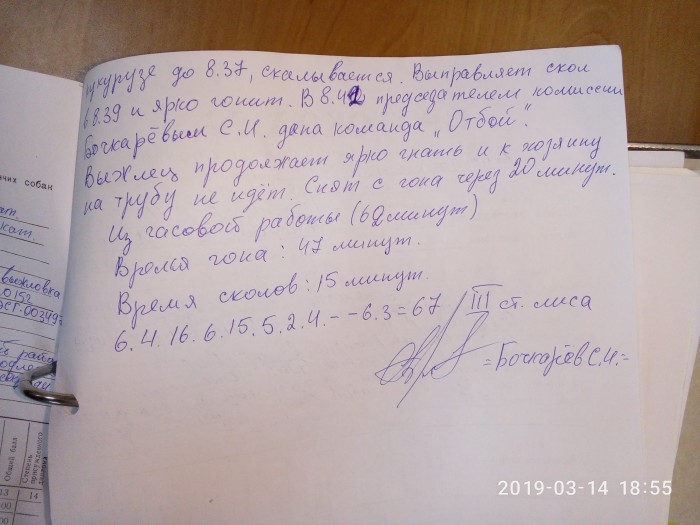 кукурузе до 8.37, скалывается. Выправляет скол
в 8.39 и ярко гонит. В 8.42 председателем комиссии
Бочкарёвым С.И. дана команда „Отбой".
Выжлец продолжает ярко гнать и к хозяину
на трубу не идёт. Снят с гона через 20 минут.
Из часовой работы (62 минут)
Время гона: 47 минут.
Время сколов: 15 минут.
6.4.16.6.15.5.2.4.--6.3=67 III ст. лиса
=Бочкарёв С.И.=
нчих собак
выжловка
Общий балл
Степень присужденного диплома
13 14
00
2019-03-14 18:55